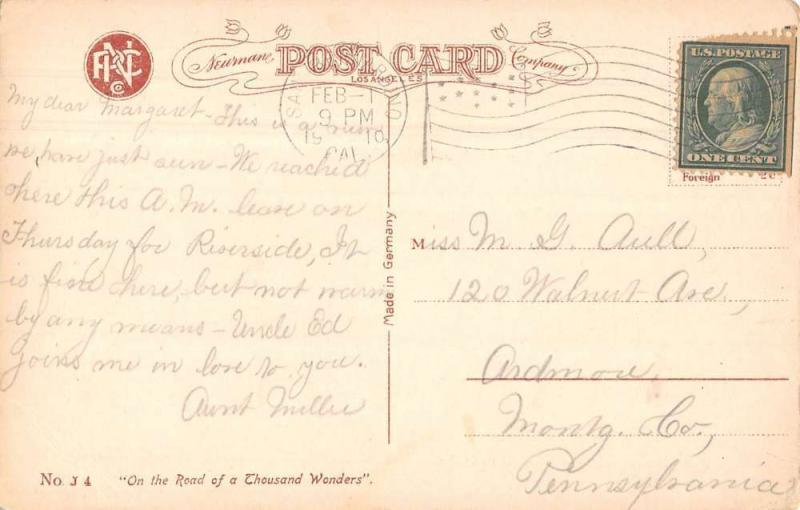 Newman POST CARD Company
LOS ANGELES
SAN BERNARDINO
FEB-1
9 PM
1910
CAL
U.S. POSTAGE
ONE CENT
Foreign 2c
My dear Margaret - This is a
we have just seen - We reached
here this A.M. leave on
Thursday for Riverside, It
is fine here, but not warm
by any means - Uncle Ed
joins me in love to you.
Aunt Millie
Made in Germany
Miss M. G. Aull,
120 Walnut Ave.,
Ardmore,
Montg. Co.,
Pennsylvania
No. J 4 "On the Road of a Thousand Wonders".